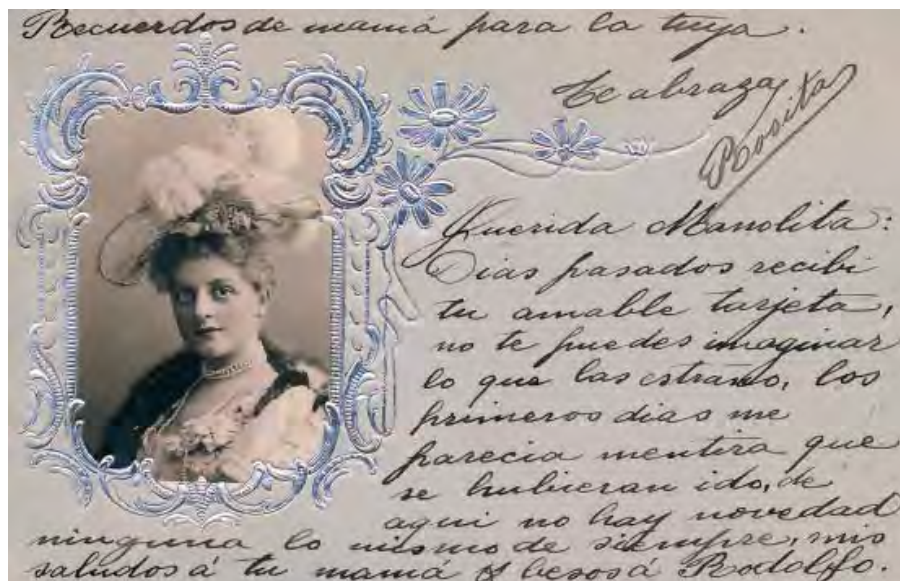 Recuerdos de mamá para la tuya.
Te abraza
Rosita
Querida Manolita:
Dias pasados recibi
tu amable tarjeta,
no te puedes imaginar
lo que las estraño, los
primeros dias me
parecia mentira que
se hubieran ido, de
aqui no hay novedad
ninguna lo mismo de siempre, mis
saludos á tu mamá y besos á Rodolfo.